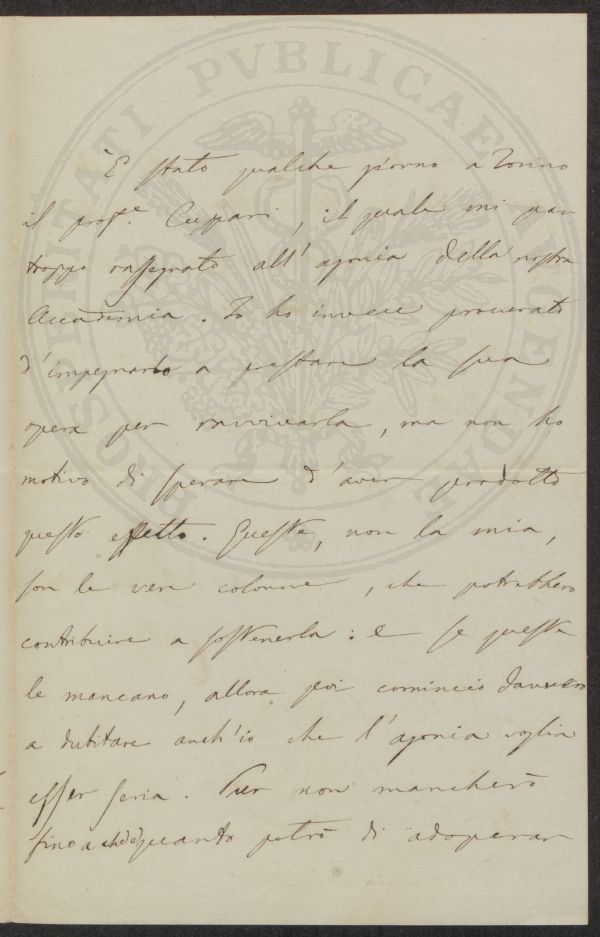 È stato qualche giorno a Torino
il profe. Cuppari, il quale mi par
troppo rassegnato all'agonia della nostra
Accademia. Io ho invece procurato
d'impegnarlo a prestare la sua
opera per ravvivarla, ma non ho
motivo di sperare d'aver prodotto
questo effetto. Queste, non la mia,
son le vere colonne, che potrebbero
contribuire a sostenerla: e se queste
le mancano, allora poi comincio davvero
a dubitare anch'io che l'agonia voglia
esser seria. Pur non mancherò
fino a quanto potrò di adoperar
PROSPERITATI PVBLICAE AVGENDAE